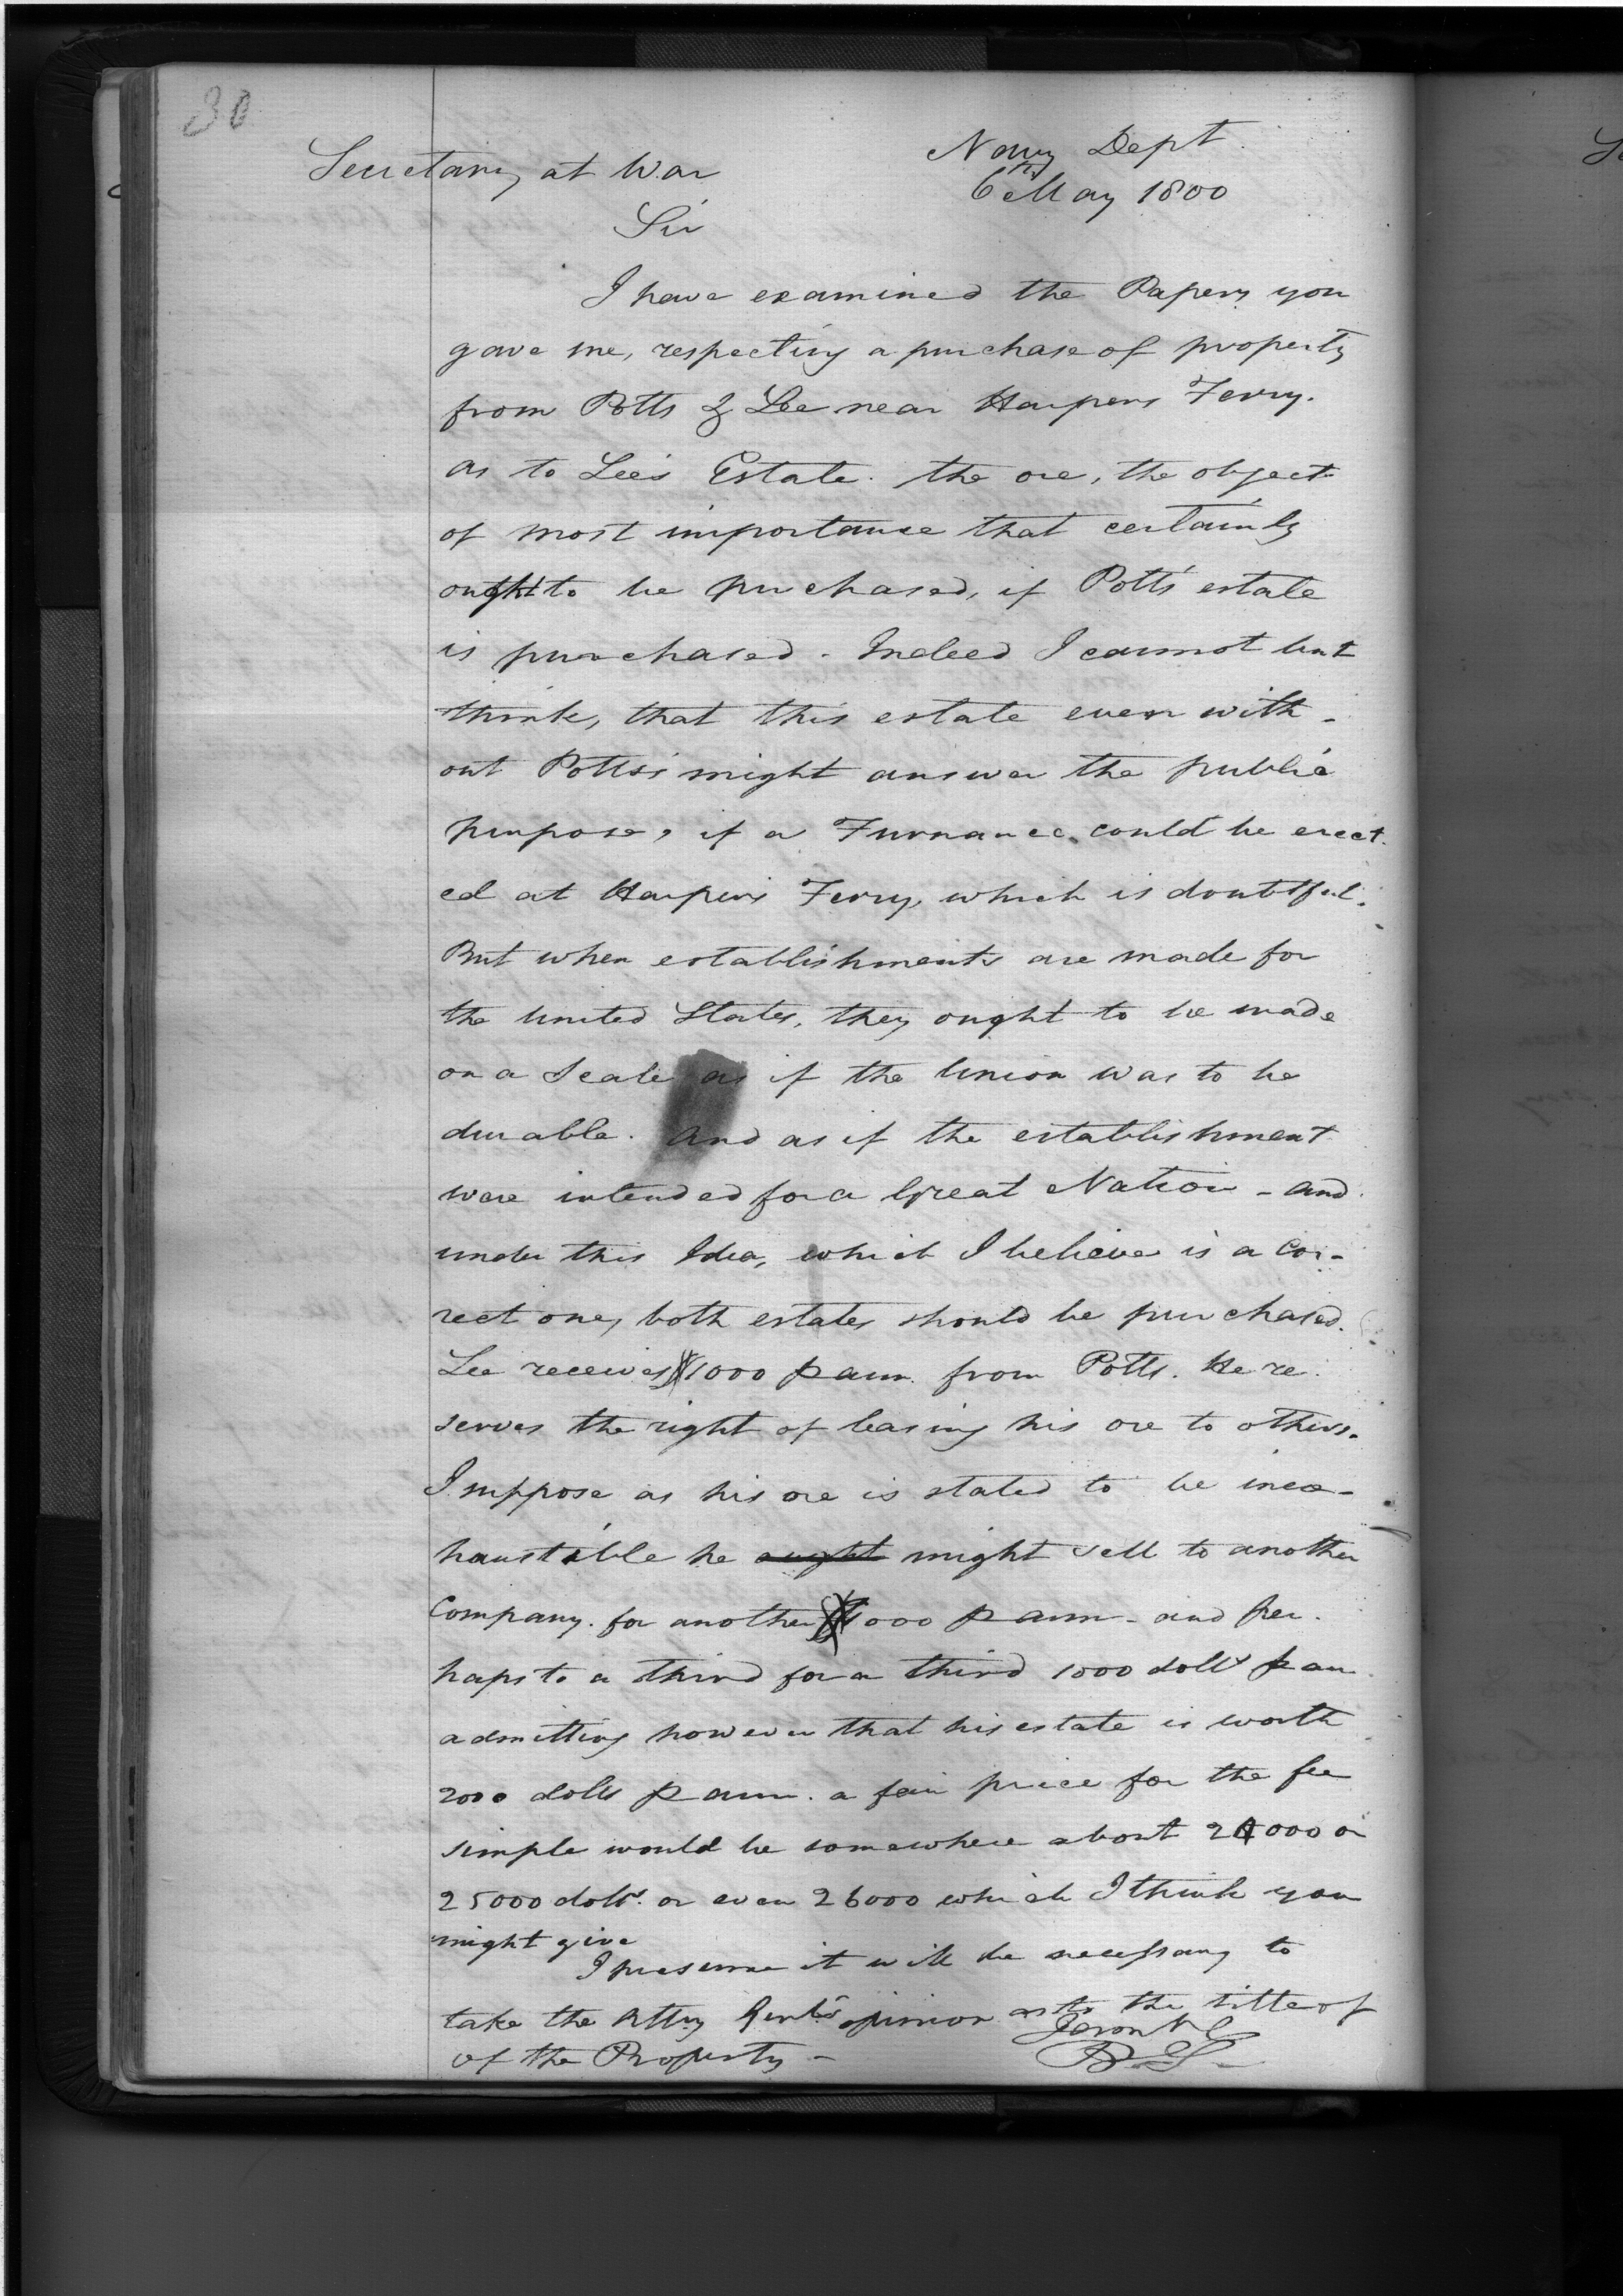 30
Navy Dept.
Secretary at War
6th May 1800
Sir
I have examined the Papers you
gave me, respecting a purchase of property
from Potts & Lee near Harpers Ferry.
as to Lee's Estate. the ore, the object
of most importance that certainly
ought to be purchased, if Potts' estate
is purchased - Indeed I cannot but
think, that this estate even with-
out Potts's might answer the public
purpose, if a Furnance could be erect-
ed at Harper's Ferry, which is doubtful.
But when establishments are made for
the United States, they ought to be made
on a Scale as if the Union was to be
durable. And as if the establishment
were intended for a Great Nation - and
under this Idea, which I believe is a Cor-
rect one, both estates should be purchased.
Lee receives $1000 p ann. from Potts. He re-
serves the right of leasing his ore to others.
I suppose as his ore is stated to be inex-
haustible he ought might sell to another
Company. for another $1000 p ann - and per-
haps to a third for a third 1000 dolls p an
admitting however that his estate is worth
2000 dolls p ann. a fair price for the fee
simple would be somewhere about 24000 or
25000 dolls. or even 26000 which I think you
might give
I presume it will be necessary to
take the Atty Genl's opinion as to the title of
of the Property -
B S